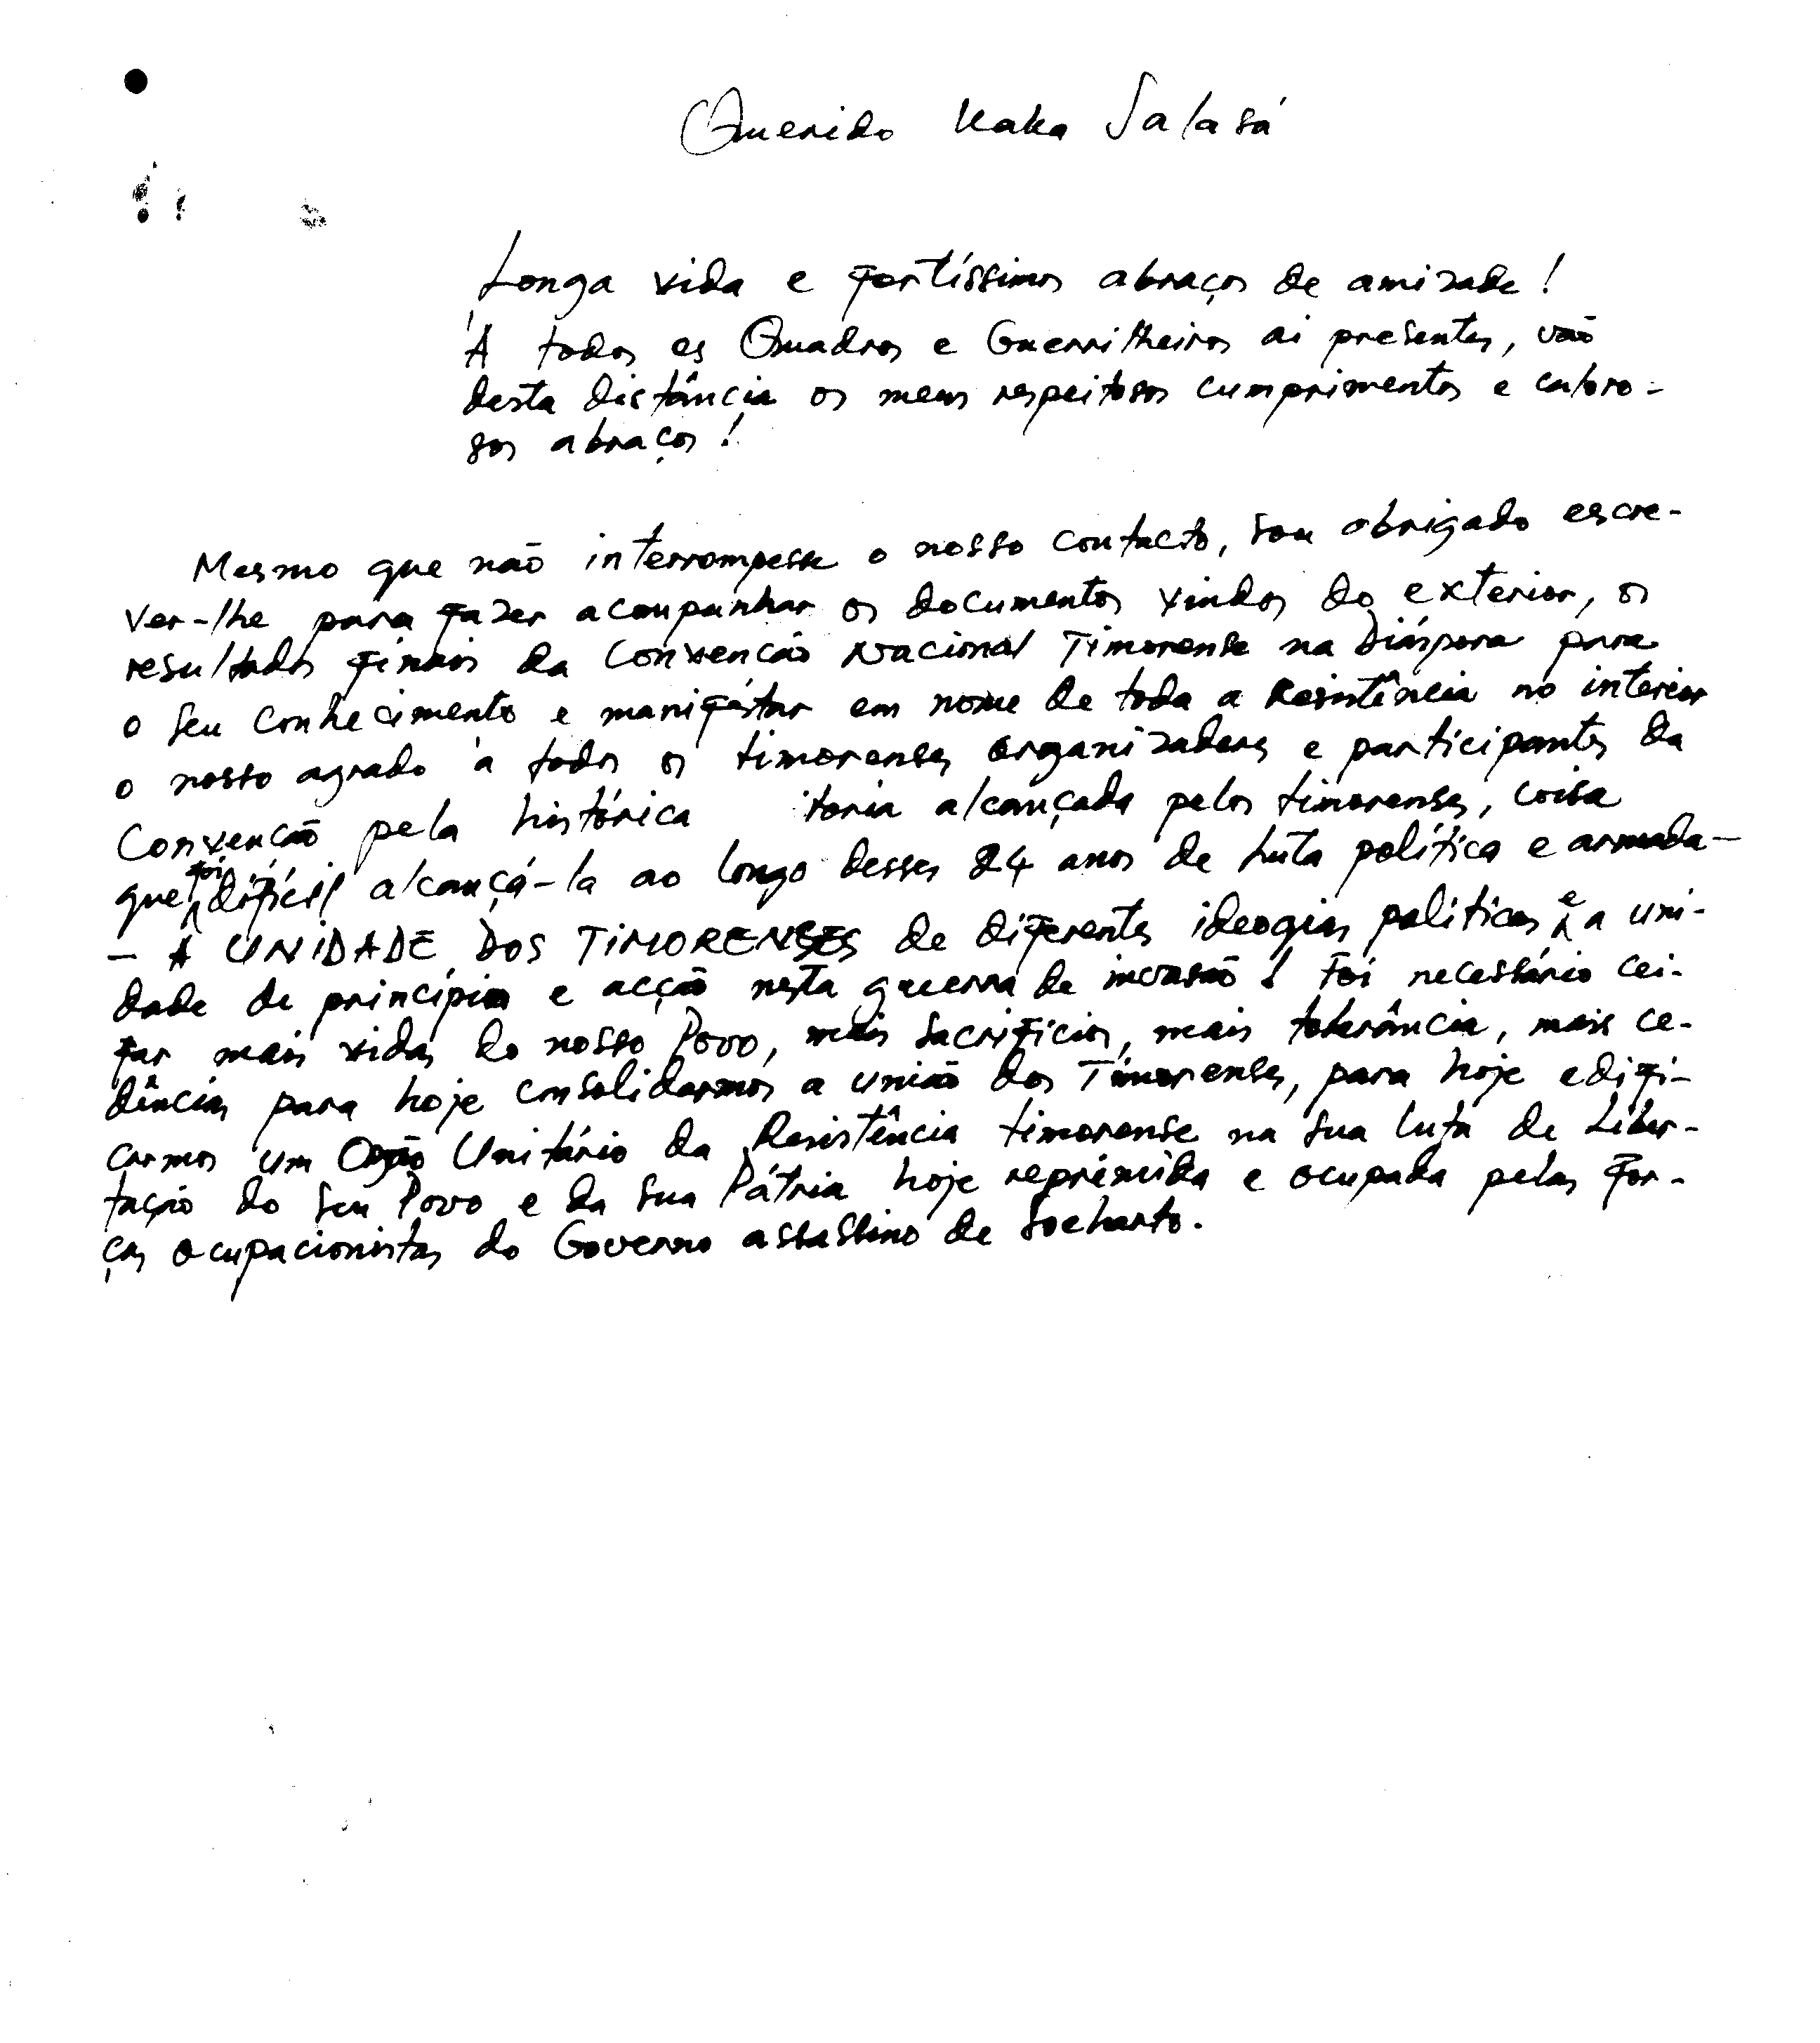 Querido Kaka Salasá
Longa vida e fortíssimos abraços de amizade!
À todos os Quadros e Guerrilheiros ai presentes, vão
desta distância os meus respeitosos cumprimentos e caloro-
sos abraços!
Mesmo que não interrompesse o nosso contacto, sou obrigado escre-
ver-lhe para fazer acompanhar os documentos vindos do exterior, os
resultados finais da Convenção Nacional Timorense na Diáspora para
o seu conhecimento e manifestar em nome de toda a Resistência no interior
o nosso agrado à todos os timorenses organizadores e participantes da
Convenção pela histórica itoria alcançada pelos timorenses, coisa
que foi difícil alcançá-la ao longo desses 24 anos de luta política e armada—
— A UNIDADE DOS TIMORENSES de diferentes ideogias políticas e a uni-
dade de princípios e acção nesta guerra de invasão! Foi necessário cei-
far mais vidas do nosso Povo, mais sacrifícios, mais tolerância, mais ce-
dências para hoje consolidarmos a união dos Timorenses, para hoje edifi-
carmos um Ogão Unitário da Resistência timorense na sua luta de Liber-
tação do seu Povo e da sua Pátria hoje reprimida e ocupada pelas for-
ças ocupacionistas do Governo assassino de Soeharto.